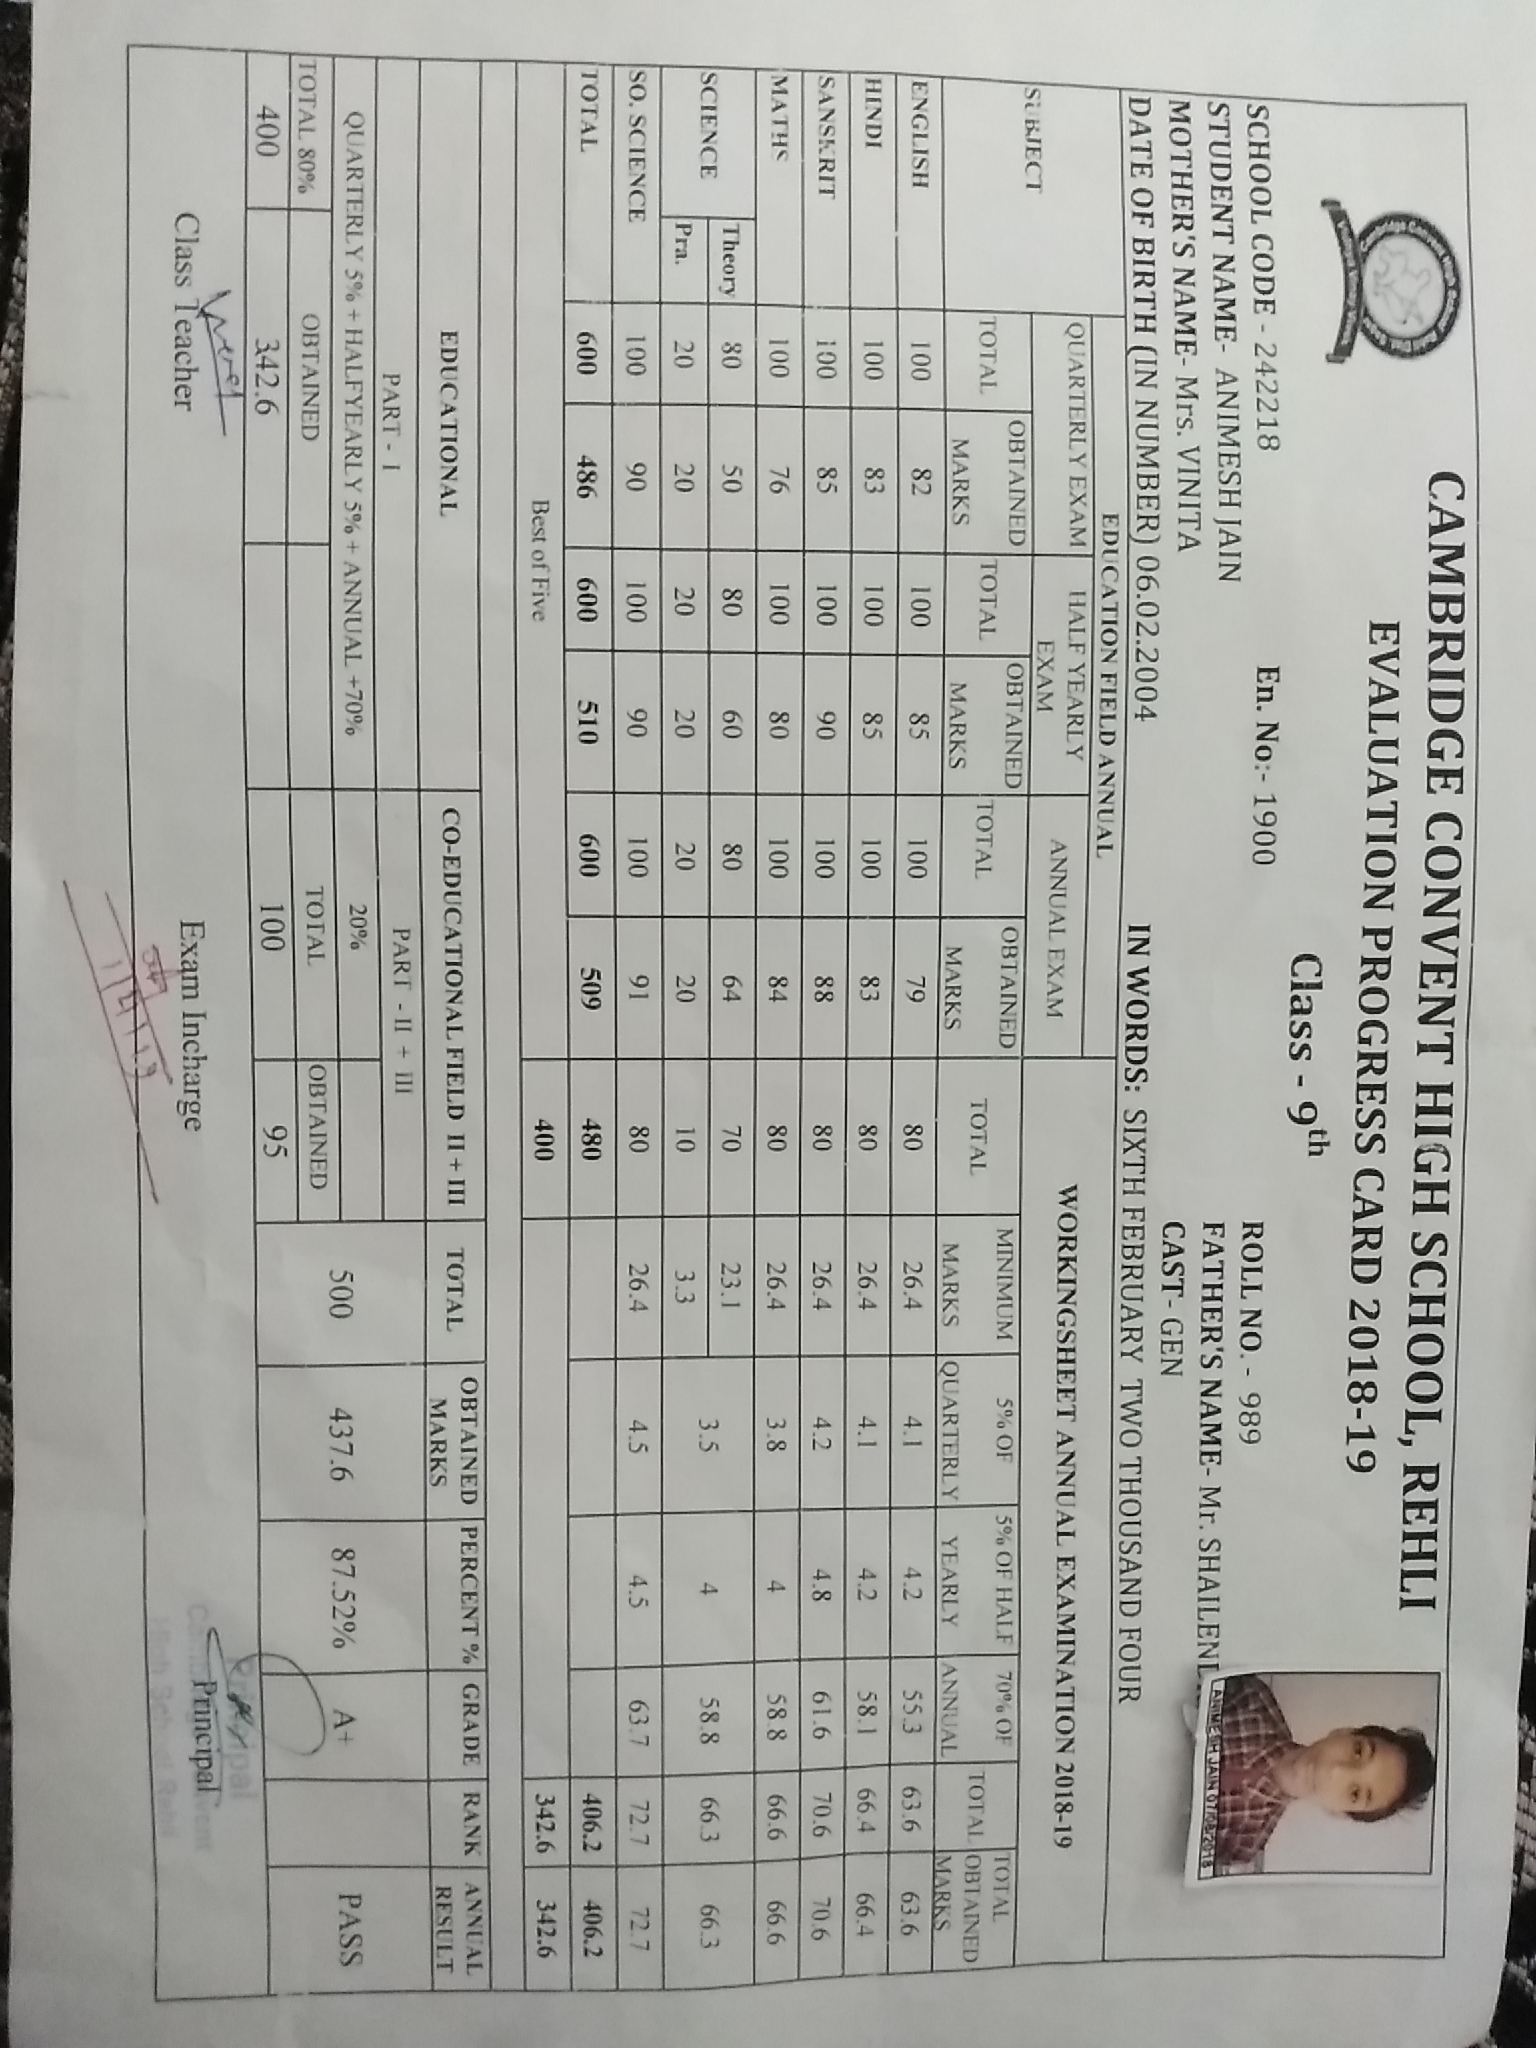 CAMBRIDGE CONVENT HIGH SCHOOL, REHLI
EVALUATION PROGRESS CARD 2018-19
Class - 9th
SCHOOL CODE - 242218 En. No:- 1900 ROLL NO. - 989
STUDENT NAME- ANIMESH JAIN FATHER'S NAME- Mr. SHAILEN
MOTHER'S NAME- Mrs. VINITA CAST- GEN
DATE OF BIRTH (IN NUMBER) 06.02.2004 IN WORDS: SIXTH FEBRUARY TWO THOUSAND FOUR
ANIMESH JAIN 07/08/2018
EDUCATION FIELD ANNUAL WORKINGSHEET ANNUAL EXAMINATION 2018-19
SUBJECT QUARTERLY EXAM HALF YEARLY EXAM ANNUAL EXAM
TOTAL OBTAINED MARKS TOTAL OBTAINED MARKS TOTAL OBTAINED MARKS TOTAL MINIMUM MARKS 5% OF QUARTERLY 5% OF HALF YEARLY 70% OF ANNUAL TOTAL TOTAL OBTAINED MARKS
ENGLISH 100 82 100 85 100 79 80 26.4 4.1 4.2 55.3 63.6 63.6
HINDI 100 83 100 85 100 83 80 26.4 4.1 4.2 58.1 66.4 66.4
SANSKRIT 100 85 100 90 100 88 80 26.4 4.2 4.8 61.6 70.6 70.6
MATHS 100 76 100 80 100 84 80 26.4 3.8 4 58.8 66.6 66.6
SCIENCE Theory 80 50 80 60 80 64 70 23.1 3.5 4 58.8 66.3 66.3
Pra. 20 20 20 20 20 20 10 3.3
SO. SCIENCE 100 90 100 90 100 91 80 26.4 4.5 4.5 63.7 72.7 72.7
TOTAL 600 486 600 510 600 509 480 406.2 406.2
Best of Five 400 342.6 342.6
EDUCATIONAL CO-EDUCATIONAL FIELD II + III TOTAL OBTAINED MARKS PERCENT % GRADE RANK ANNUAL RESULT
PART - I PART - II + III
QUARTERLY 5% + HALFYEARLY 5% + ANNUAL +70% 20%
TOTAL 80% OBTAINED TOTAL OBTAINED
400 342.6 100 95 500 437.6 87.52% A+ PASS
Class Teacher Exam Incharge Principal
Principal